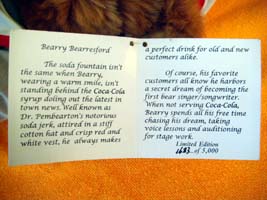 Bearry Bearresford
The soda fountain isn't
the same when Bearry,
wearing a warm smile, isn't
standing behind the Coca-Cola
syrup doling out the latest in
town news. Well known as
Dr. Pembearton's notorious
soda jerk, attired in a stiff
cotton hat and crisp red and
white vest, he always makes
a perfect drink for old and new
customers alike.
Of course, his favorite
customers all know he harbors
a secret dream of becoming the
first bear singer/songwriter.
When not serving Coca-Cola,
Bearry spends all his free time
chasing his dream, taking
voice lessons and auditioning
for stage work.
Limited Edition
1683 of 5,000